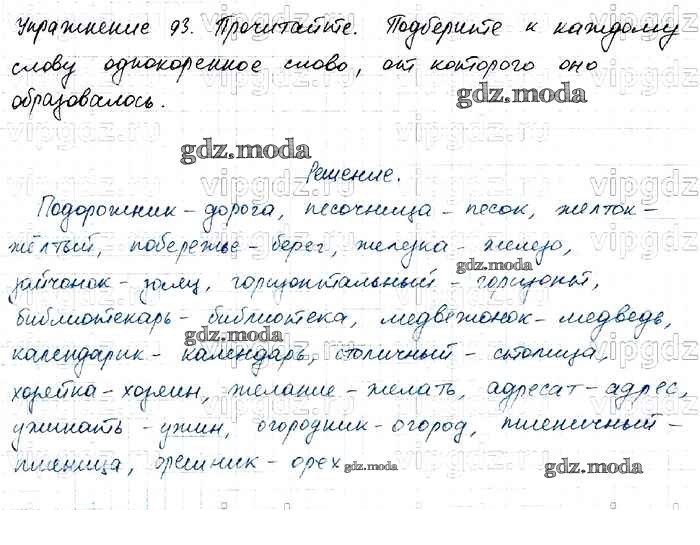 Упражнение 93. Прочитайте. Подберите к каждому
слову однокоренное слово, от которого оно
образовалось.
gdz.moda
gdz.moda
Решение.
Подорожник – дорога, песочница – песок, желток –
жёлтый, побережье – берег, железка – железо,
gdz.moda
зайчонок – заяц, горизонтальный – горизонт,
библиотекарь – библиотека, медвежонок – медведь,
gdz.moda
календарик – календарь, столичный – столица,
хозяйка – хозяин, желание – желать, адресат – адрес,
ужинать – ужин, огородник – огород, пшеничный –
gdz.moda
пшеница, орешник – орех
gdz.moda
gdz.moda
vipgdz.ru